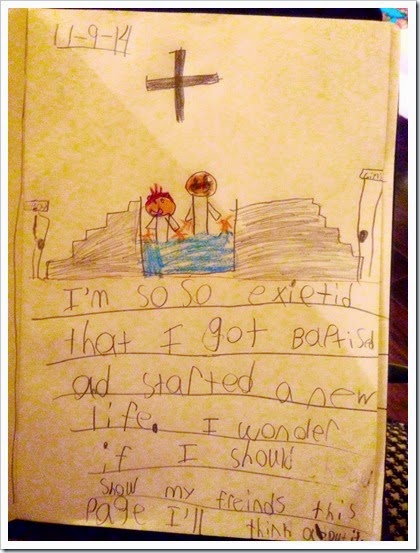 11-9-14
I'm so so exietid
that I got Baptised
ad started a new
life. I wonder
if I should
show my freinds this
Page I'll think about it